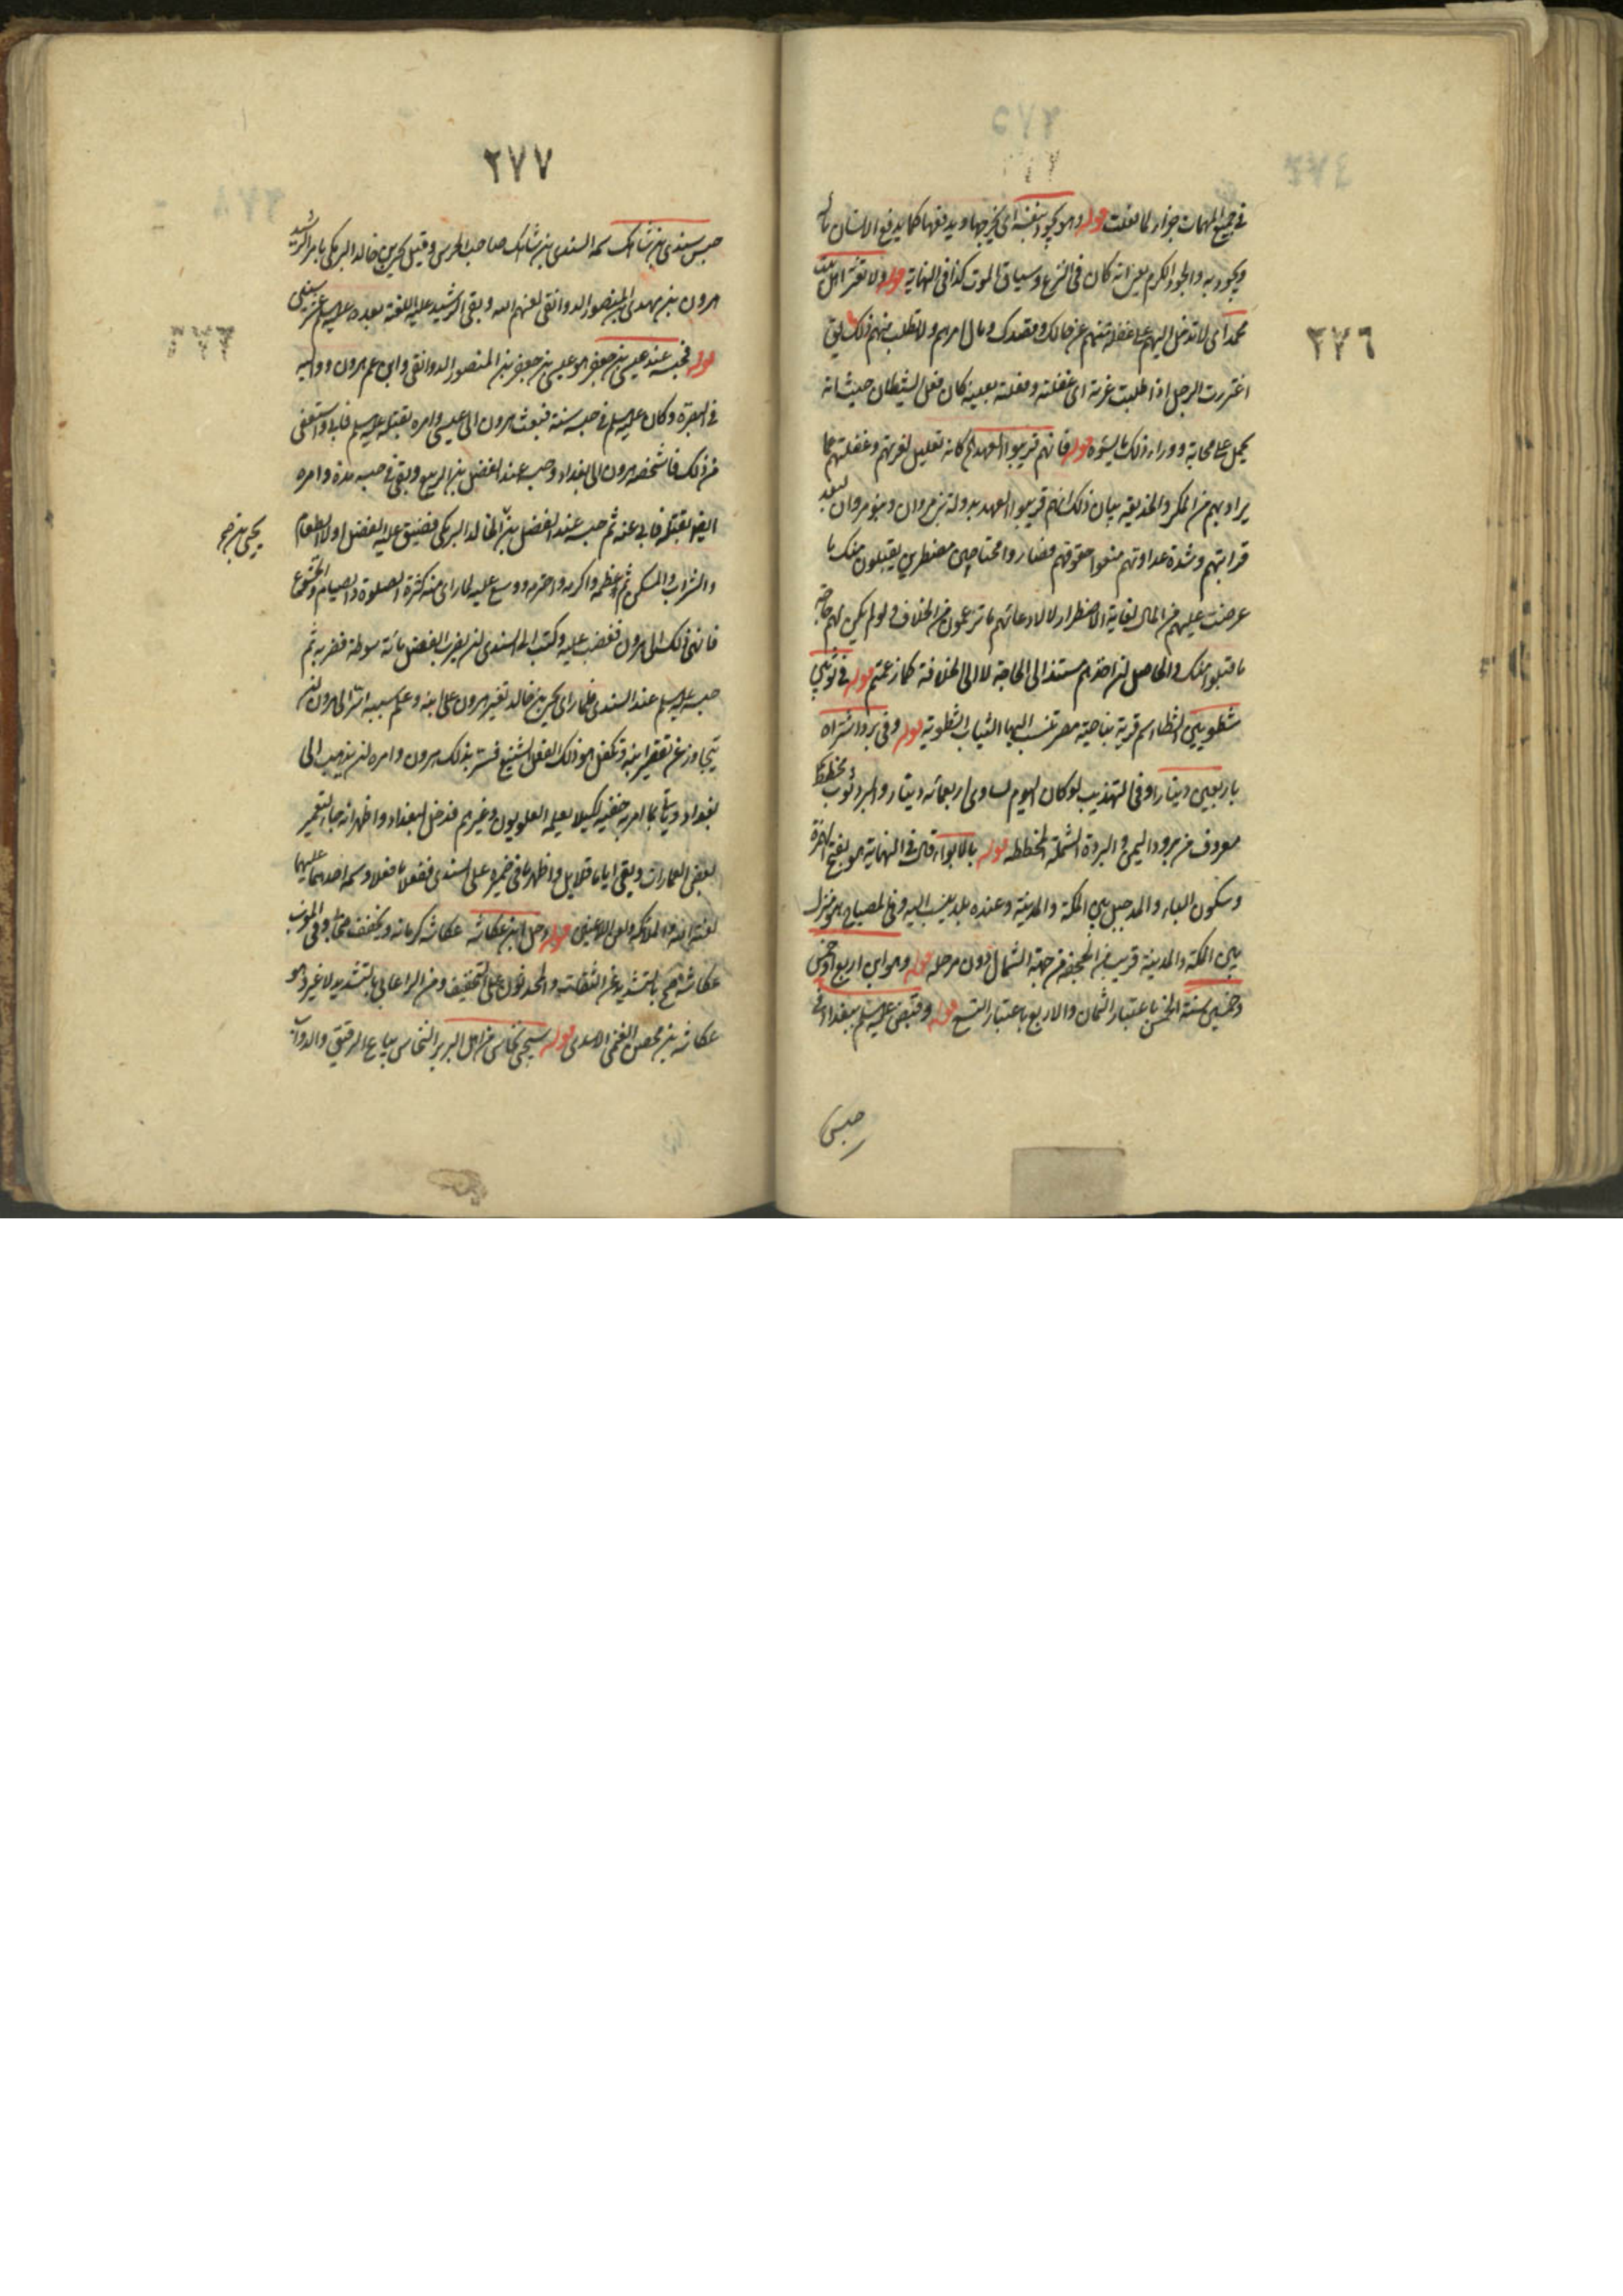 ٢٧٦
في جميع المهمات جزاء لما فعلت قوله وهو يجود بنفسه اى يخرجها ويدفعها كما يدفع الانسان ماله
ويجود به والجود الكرم يعنى انه كان في النزع وسياق الموت كذا في النهاية قوله ولا تغتر اهل بيت
محمد اى لا تدخل اليهم على غفلة منهم عن حالك وقصدك ومال امرهم ولا تطلب منهم ذلك يق
اغتررت الرجل اذا طلبت غرته اى غفلته وفعلته بعينه كان فعل الشيطان حيث انه
يحمل على محابه ووراء ذلك ما يسوه قوله فانهم قريبوا العهد الخ كانه تعليل لغرتهم وغفلتهم عما
يراد بهم من المكر والخديعة بيان ذلك انهم قريبوا العهد بدولة بنى مروان وبنو مروان لبعد
قرابتهم وشدة عداوتهم منعوا حقوقهم فصاروا محتاجين مضطرين يقبلون منك ما
عرضت عليهم من المال لغاية الاضطرار لا لادعائهم ما تزعمون من الخلافة ولو لم يكن لهم حاجة
ما قبلوا منك والحاصل ان اخذهم مستند الى الحاجة لا الى الخلافة كما زعمتم قوله في ثوبين
شطويين الشطا اسم قرية بناحية مصر تنسب اليها الثياب الشطوية قوله وفي برد اشتراه
باربعين دينارا وفي التهذيب لو كان اليوم لساوى اربعمائة دينار والبرد ثوب مخطط
معروف من برود اليمن والبردة الشملة المخططة قوله بالابواء قال في النهاية هو بفتح الهمزة
وسكون الباء والمد جبل بين المكة والمدينة وعنده بلد ينسب اليه وفي المصباح هو منزل
بين المكة والمدينة قريب من الجحفة من جهة الشمال دون مرحلة قوله وهو ابن اربع او خمس
وخمسين سنة الخمس باعتبار الثمان والاربع باعتبار التسع قوله وقبض عليه السلم ببغداد في
حبس
٢٧٧
حبس سندى بن شاهك سمه السندى بن شاهك صاحب الحرس وقيل يحيى بن خالد البرمكى بامر الرشيد
هرون بن مهدى بن المنصور الدوانقى لعنهم الله وبقى الرشيد عليه اللعنة بعده عليه السلم عشر سنين
قوله فحبسه عند عيسى بن جعفر هو عيسى بن جعفر بن المنصور الدوانقى وابن عم هرون وواليه
في البصرة وكان عليه السلم في حبسه سنة فبعث هرون الى عيسى وامره بقتله عليه السلم فابى واستعفى
من ذلك فاشخصه هرون الى بغداد وحبسه عند الفضل بن الربيع وبقى في حبسه مدة وامره
ايضا بقتله فابى عنه ثم حبسه عند الفضل بن الخالد البرمكى فضيق عليه الفضل اولا بالطعام
يحيى بن
والشراب والمسكن ثم عظمه واكرمه واحترمه ووسع عليه لما راى منه كثرة الصلوة والصيام والخشوع
فانهى ذلك الى هرون فغضب عليه وكتب الى السندى ان يضرب الفضل مائة سوط فضربه ثم
حبسه عليه السلم عند السندى فلما راى يحيى بن خالد تغير هرون على ابنه وعلم سببه اتى الى هرون ان
يتجاوز عن تقصير ابنه وتكفل هو ذلك الفعل الشنيع فسر بذلك هرون وامره ان يذهب الى
بغداد وياتى بما امر به خفية لكيلا يعلمه العلويون وغيرهم فدخل بغداد واظهر انه جاء لتعمير
بعض العمارات وبقى اياما قلايل واظهر ما في ضميره على السندى ففعلا ما فعلا وسمه احدهما عليهما
لعنة الله والملائكة ولعن اللاعنين قوله دخل ابن عكاشة عكاشة كرمانة ويخفف صحابى وفي المغرب
عكاشة صح بالتشديد عن الثقات والمحدثون على التخفيف ومن الرعالى بالتشديد لا غير وهو
عكاشة بن محصن الغنمى الاسدى قوله سيجئ نخاس من اهل البربر النخاس بياع الرقيق والدواب